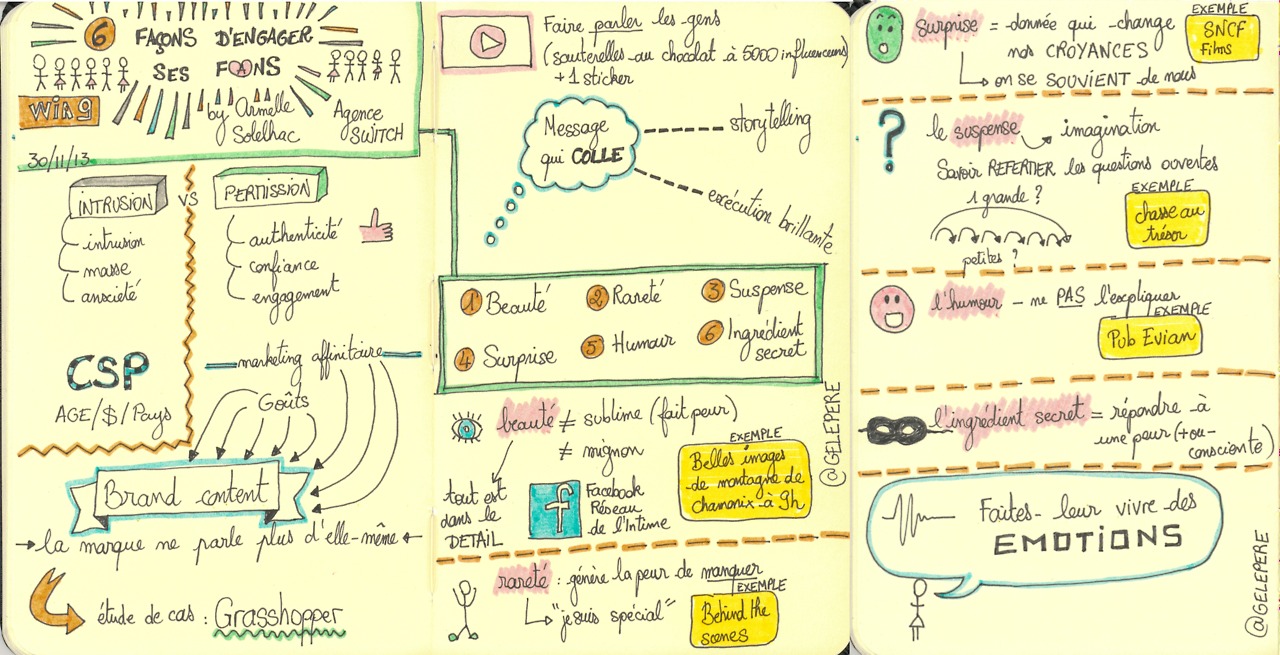 6 FAÇONS D'ENGAGER
SES FANS
WIA9
by Armelle
Solelhac
Agence
SWITCH
30/11/13
INTRUSION
VS
PERMISSION
intrusion
masse
anxiété
authenticité
confiance
engagement
CSP
AGE/$/Pays
marketing affinitaire
Goûts
Brand content
la marque ne parle plus d'elle-même
étude de cas : Grasshopper
Faire parler les gens
(sauterelles au chocolat à 5000 influenceurs)
+ 1 sticker
Message
qui COLLE
storytelling
exécution brillante
1 Beauté
2 Rareté
3 Suspense
4 Surprise
5 Humour
6 Ingrédient
secret
beauté ≠ sublime (fait peur)
≠ mignon
tout est
dans le
DETAIL
f
Facebook
Réseau
de l'Intime
EXEMPLE
Belles images
de montagne de
chamonix à 9h
@GELEPERE
rareté : génère la peur de manquer
"je suis spécial"
EXEMPLE
Behind the
scenes
surprise = donnée qui change
nos CROYANCES
on se SOUVIENT de nous
EXEMPLE
SNCF
Films
?
le suspense
imagination
Savoir REFERMER les questions ouvertes
1 grande ?
petites ?
EXEMPLE
chasse au
trésor
l'humour - ne PAS l'expliquer
EXEMPLE
Pub Evian
l'ingrédient secret = répondre à
une peur (+ ou -
consciente)
Faites-leur vivre des
EMOTIONS
@GELEPERE